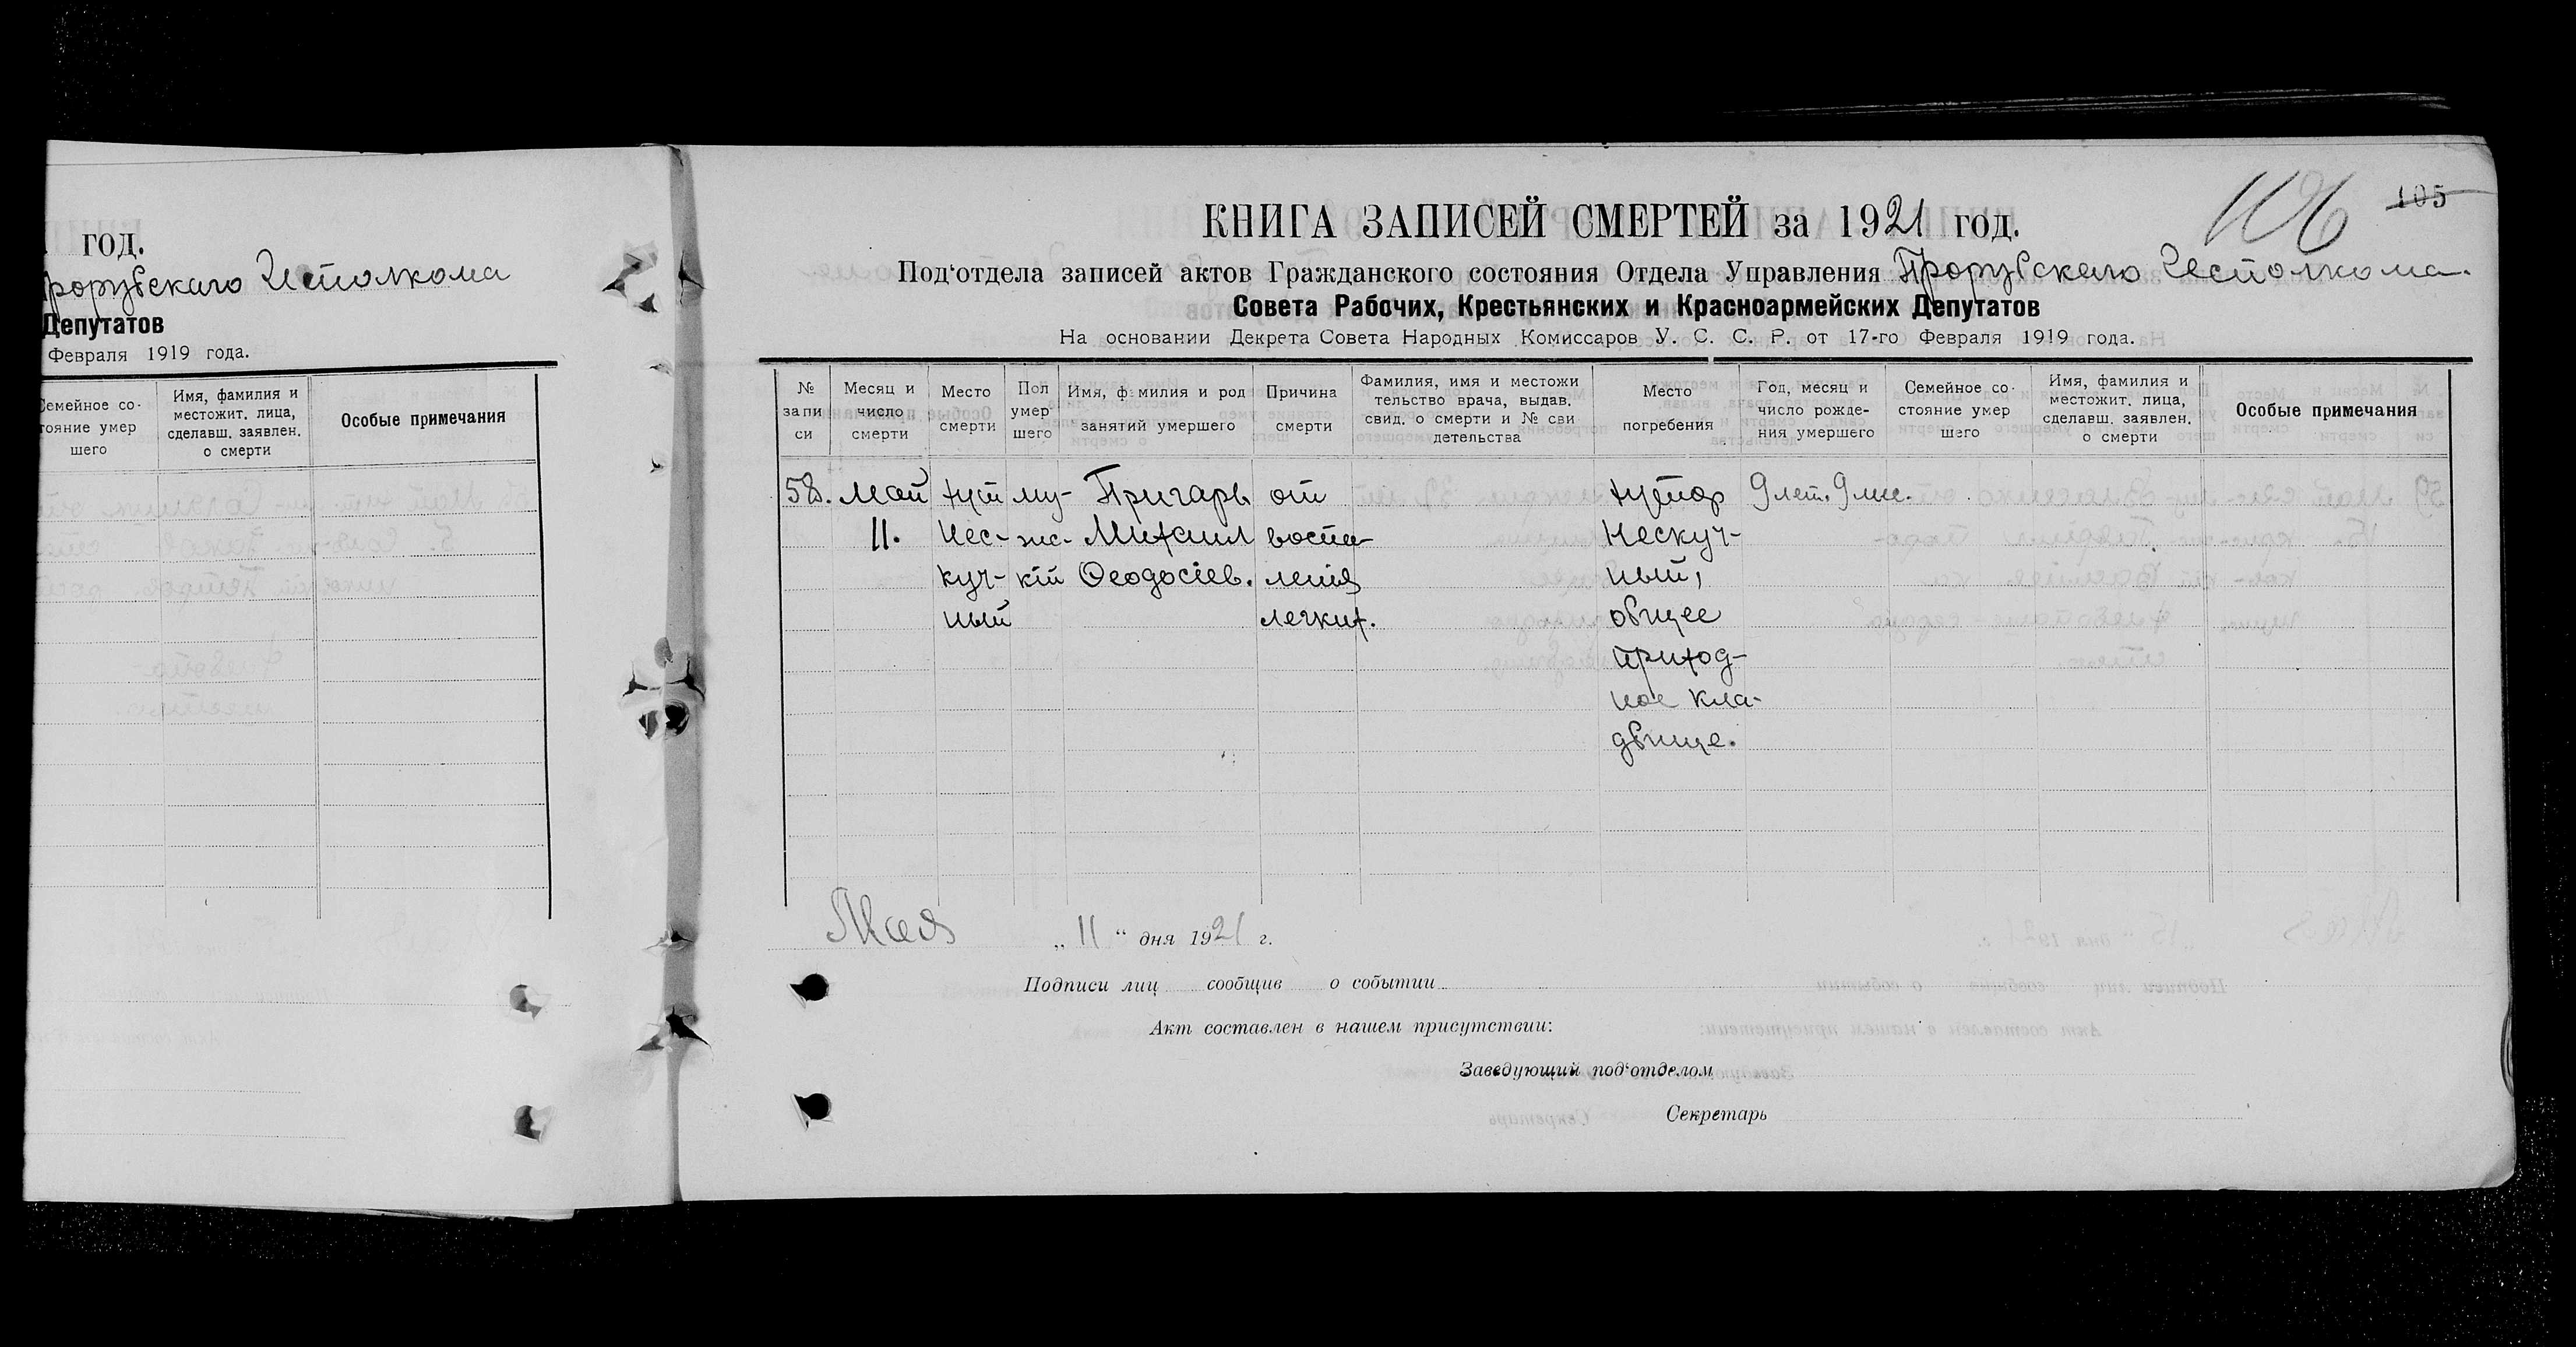 год.
рорубскаго Исполкома
Депутатов
Февраля 1919 года.
Семейное со-
тояние умер
шего
Имя, фамилия и
местожит. лица,
сделавш. заявлен.
о смерти
Особые примечания
106
105
КНИГА ЗАПИСЕЙ СМЕРТЕЙ за 1921 год.
Под‘отдела записей актов Гражданского состояния Отдела Управления Прорубскаго Исполкома.
Совета Рабочих, Крестьянских и Красноармейских Депутатов
На основании Декрета Совета Народных Комиссаров У. С. С. Р. от 17-го Февраля 1919 года.
№
запи
си
Месяц и
число
смерти
Место
смерти
Пол
умер
шего
Имя, фамилия и род
занятий умершего
Причина
смерти
Фамилия, имя и местожи
тельство врача, выдав.
свид. о смерти и № сви
детельства
Место
погребения
Год, месяц и
число рожде-
ния умершего
Семейное со-
стояние умер
шего
Имя, фамилия и
местожит. лица,
сделавш. заявлен.
о смерти
Особые примечания
58. Май хут му- Пригарь от хутор 9 лет. 9 мес.
11. Нес- жс- Михаил воспа- Нескуч-
куч- кій Ѳеодосіев. ленія ный,
ный легких. общее
приход-
ное кла-
дбище.
Мая „ 11 “ дня 1921 г.
Подписи лиц сообщив о событии
Акт составлен в нашем присутствии:
Заведующий под‘отделом
Секретарь